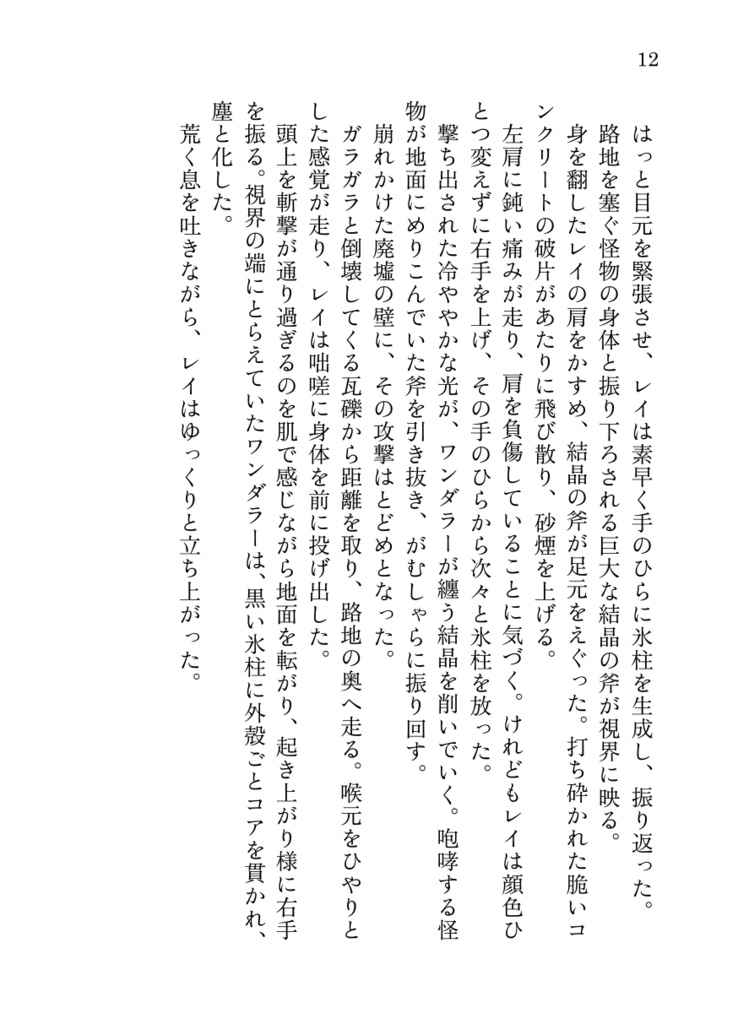 12
はっと目元を緊張させ、レイは素早く手のひらに氷柱を生成し、振り返った。
路地を塞ぐ怪物の身体と振り下ろされる巨大な結晶の斧が視界に映る。
身を翻したレイの肩をかすめ、結晶の斧が足元をえぐった。打ち砕かれた脆いコ
ンクリートの破片があたりに飛び散り、砂煙を上げる。
左肩に鈍い痛みが走り、肩を負傷していることに気づく。けれどもレイは顔色ひ
とつ変えずに右手を上げ、その手のひらから次々と氷柱を放った。
撃ち出された冷ややかな光が、ワンダラーが纏う結晶を削いでいく。咆哮する怪
物が地面にめりこんでいた斧を引き抜き、がむしゃらに振り回す。
崩れかけた廃墟の壁に、その攻撃はとどめとなった。
ガラガラと倒壊してくる瓦礫から距離を取り、路地の奥へ走る。喉元をひやりと
した感覚が走り、レイは咄嗟に身体を前に投げ出した。
頭上を斬撃が通り過ぎるのを肌で感じながら地面を転がり、起き上がり様に右手
を振る。視界の端にとらえていたワンダラーは、黒い氷柱に外殻ごとコアを貫かれ、
塵と化した。
荒く息を吐きながら、レイはゆっくりと立ち上がった。